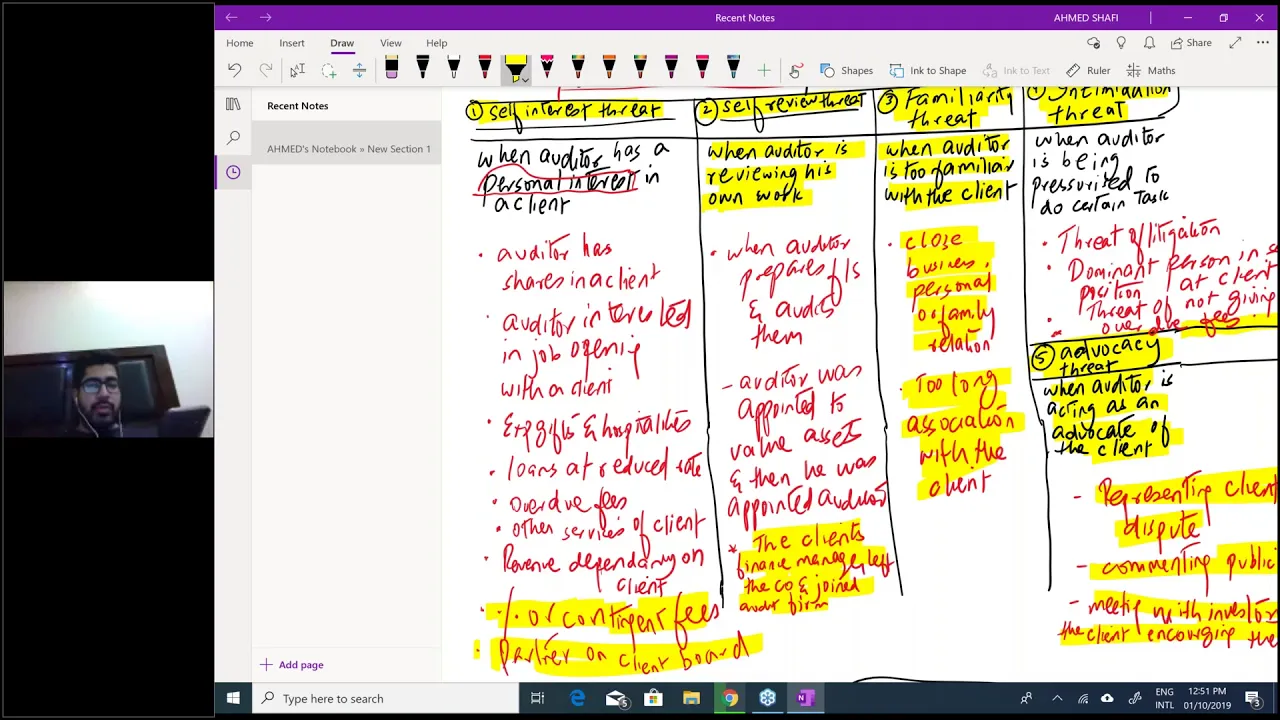 Recent Notes
AHMED SHAFI
Home
Insert
Draw
View
Help
Share
Shapes
Ink to Shape
Ink to Text
Ruler
Maths
Recent Notes
AHMED's Notebook » New Section 1
Add page
① self interest threat
when auditor has a
personal interest in
a client
• auditor has
shares in a client
• auditor interested
in job opening
with a client
• Exp gifts & hospitalities
• loans at reduced rate
• overdue fees
• other services of client
• Revenue dependancy on
client
• % or contingent fees
• Partner on client board
② self review threat
when auditor is
reviewing his
own work
• when auditor
prepares f/s
& audits
them
- auditor was
appointed to
value assets
& then he was
appointed auditor
* The clients
finance manager left
the co & joined
audit firm
③ Familiarity
threat
when auditor
is too familiar
with the client
• close
business,
personal
or family
relation
• Too long
association
with the
client
Intimidation
threat
when auditor
is being
pressurised to
do certain task
• Threat of litigation
• Dominant person in
position at client
• Threat of not giving
overdue fees
⑤ advocacy
threat
when auditor is
acting as an
advocate of
the client
- Representing client
dispute
- commenting public
- meeting with investor
the client encouraging the
Type here to search
5
ENG
INTL
12:51 PM
01/10/2019
3